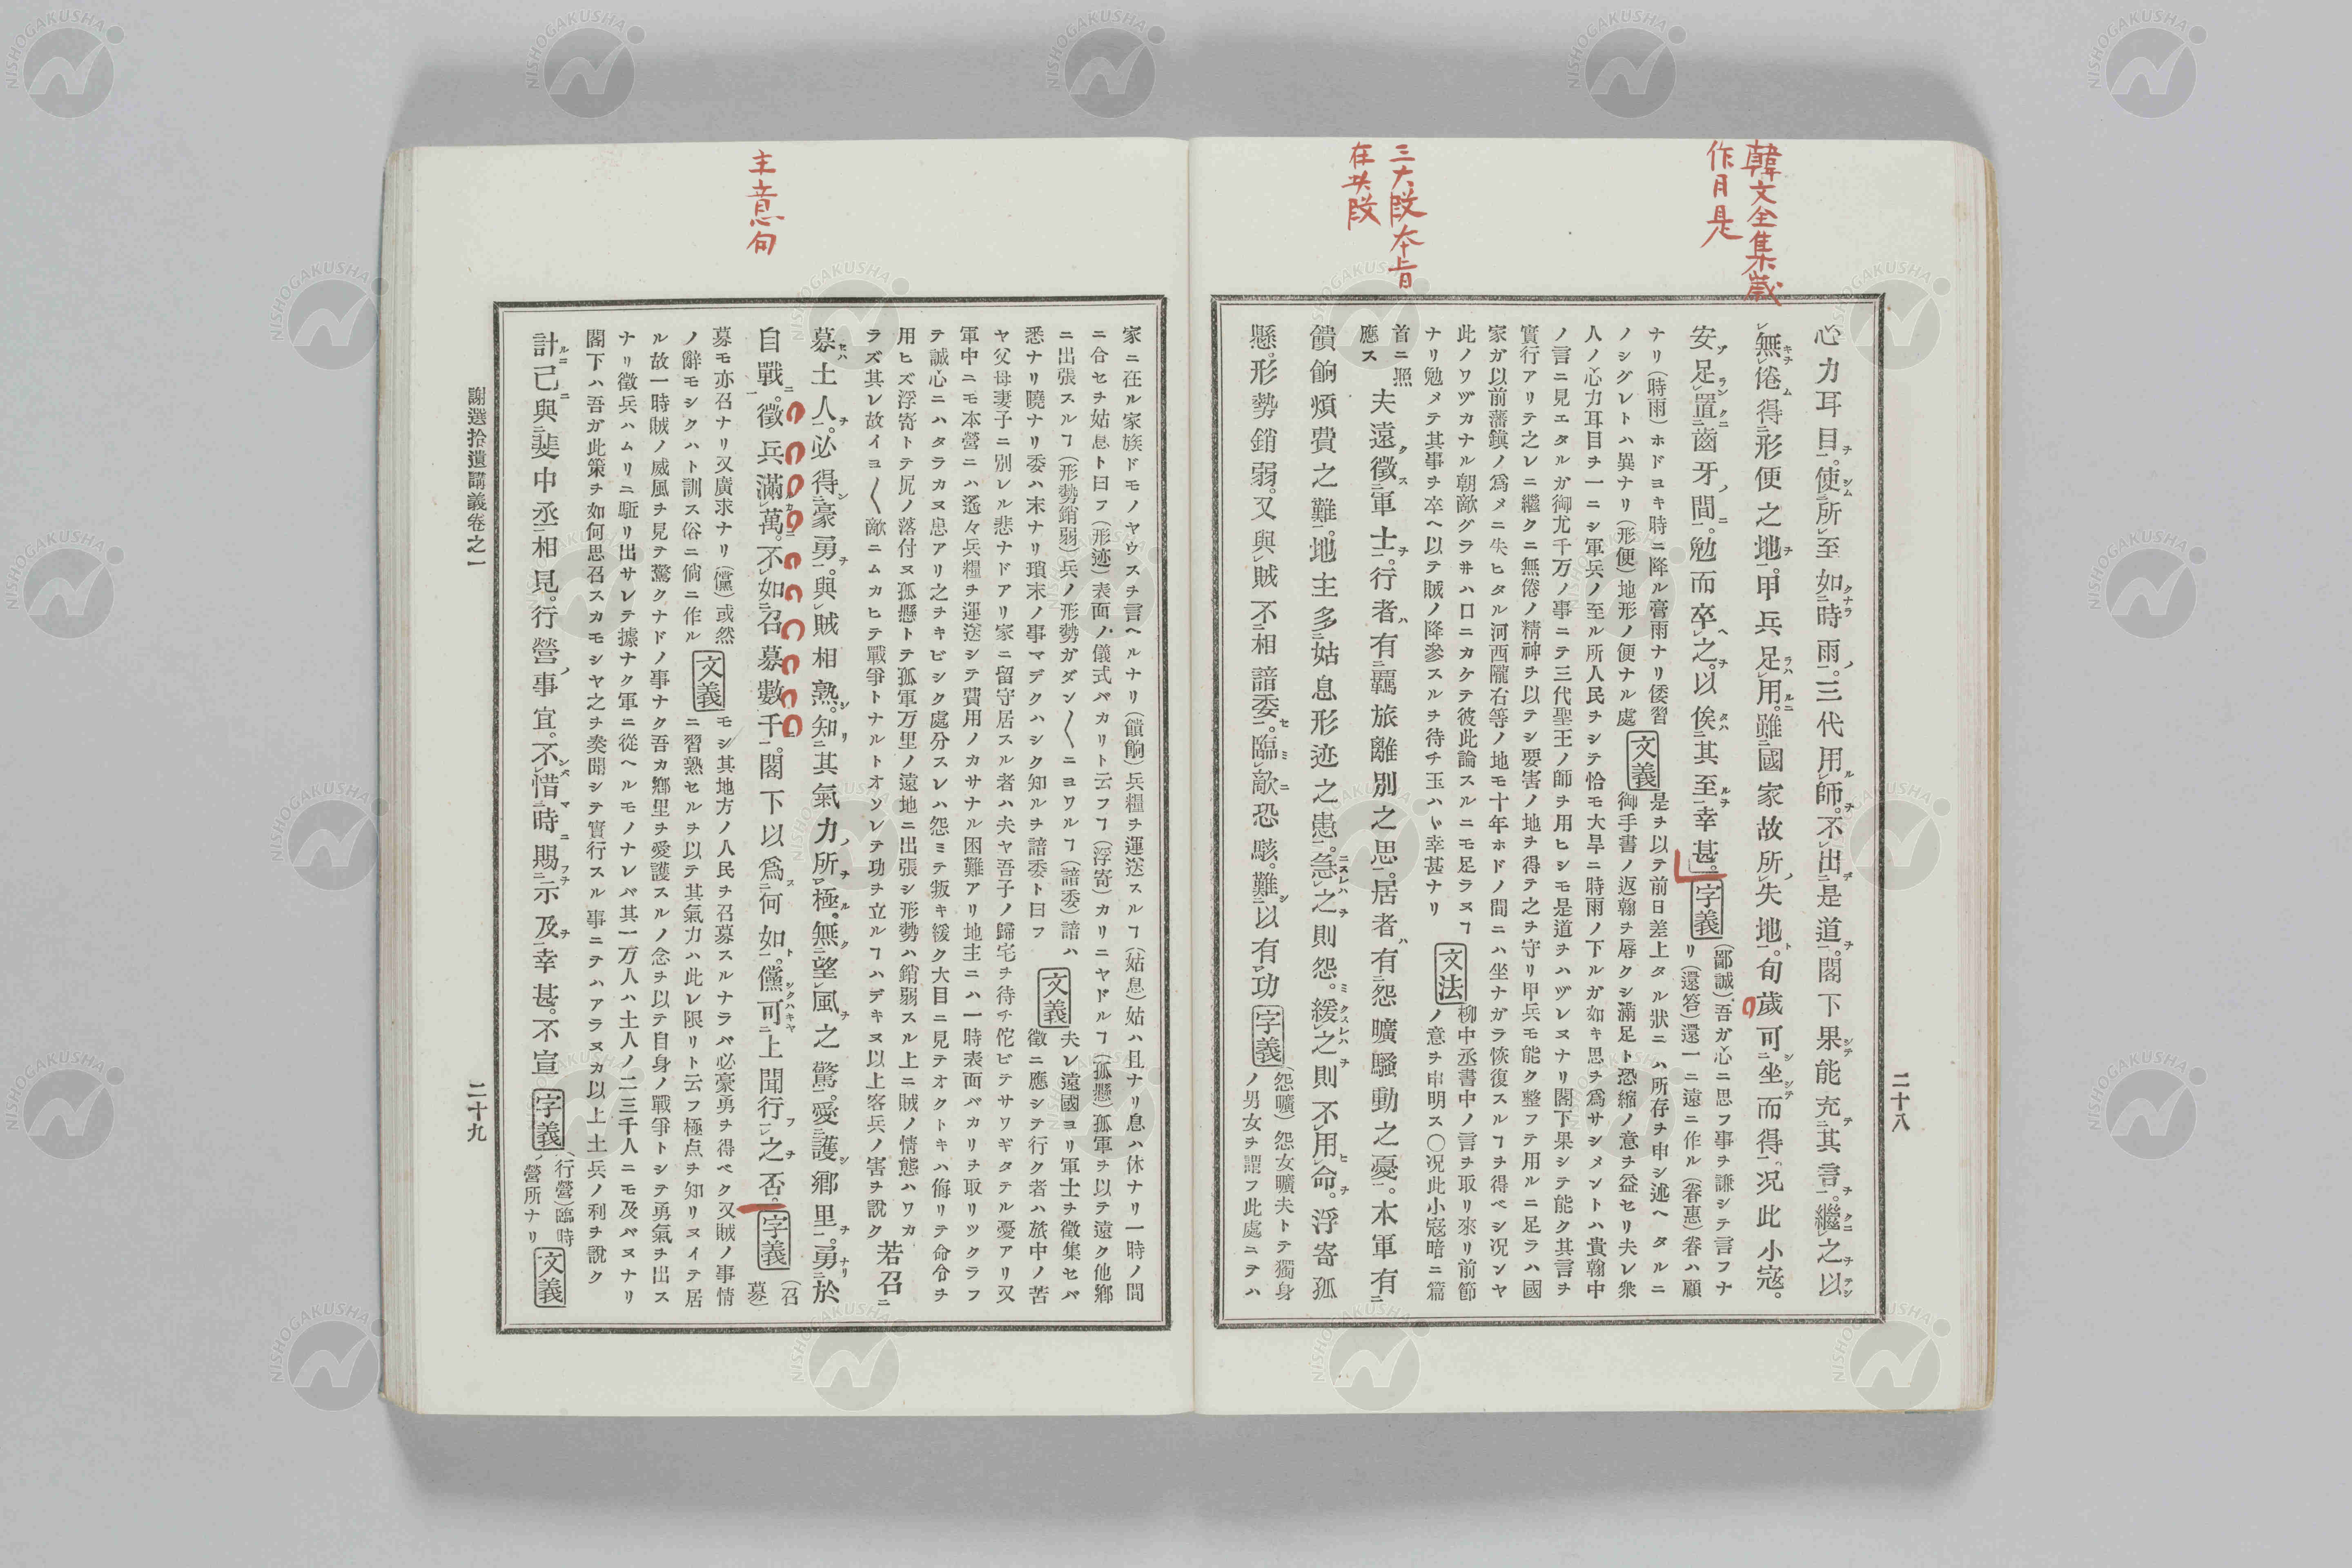 韓文全集歲
作月是
三大段本旨
在其段
心力耳目。使所至如時雨。三代用師。不出是道。閣下果能充其言。繼之以
無倦得形便之地。甲兵足用。雖國家故所失地。旬歲可坐而得。况此小寇。
安足置齒牙間。勉而卒之。以俟其至幸甚。字義(鄙誠)吾ガ心ニ思フ事ヲ謙シテ言フナ
リ(還答)還一ニ遠ニ作ル(眷惠)眷ハ顧
ナリ(時雨)ホドヨキ時ニ降ル膏雨ナリ倭習
ノシグレトハ異ナリ(形便)地形ノ便ナル處
文義
是ヲ以テ前日差上タル狀ニハ所存ヲ申シ述ヘタルニ
御手書ノ返翰ヲ辱クシ滿足ト恐縮ノ意ヲ益セリ夫レ衆
人ノ心力耳目ヲ一ニシ軍兵ノ至ル所人民ヲシテ恰モ大旱ニ時雨ノ下ルガ如キ思ヲ爲サシメントハ貴翰中
ノ言ニ見エタルガ御尤千万ノ事ニテ三代聖王ノ師ヲ用ヒシモ是道ヲハヅレヌナリ閣下果シテ能ク其言ヲ
實行アリテ之レニ繼クニ無倦ノ精神ヲ以テシ要害ノ地ヲ得テ之ヲ守リ甲兵モ能ク整フテ用ルニ足ラハ國
家ガ以前藩鎭ノ爲メニ失ヒタル河西隴右等ノ地モ十年ホドノ間ニハ坐ナガラ恢復スルヿヲ得ベシ况ンヤ
此ノワヅカナル朝敵グラ井ハ口ニカケテ彼此論スルニモ足ラヌヿ
ナリ勉メテ其事ヲ卒ヘ以テ賊ノ降參スルヲ待チ玉ハヾ幸甚ナリ
文法
柳中丞書中ノ言ヲ取リ來リ前節
ノ意ヲ申明ス〇况此小寇暗ニ篇
首ニ照
應ス
夫遠徵軍士。行者有羈旅離別之思。居者有怨曠騷動之憂。本軍有
饋餉煩費之難。地主多姑息形迹之患。急之則怨。緩之則不用命。浮寄孤
懸。形勢銷弱。又與賊不相諳委。臨敵恐駭。難以有功字義(怨曠)怨女曠夫トテ獨身
ノ男女ヲ謂フ此處ニテハ
二十八
主意句
家ニ在ル家族ドモノヤウスヲ言ヘルナリ(饋餉)兵糧ヲ運送スルヿ(姑息)姑ハ且ナリ息ハ休ナリ一時ノ間
ニ合セヲ姑息ト曰フ(形迹)表面ノ儀式バカリト云フヿ(浮寄)カリニヤドルヿ(孤懸)孤軍ヲ以テ遠ク他鄉
ニ出張スルヿ(形勢銷弱)兵ノ形勢ガダン〱ニヨワルヿ(諳委)諳ハ
悉ナリ曉ナリ委ハ末ナリ瑣末ノ事マデクハシク知ルヲ諳委ト曰フ
文義
夫レ遠國ヨリ軍士ヲ徵集セバ
徵ニ應シテ行ク者ハ旅中ノ苦
ヤ父母妻子ニ別レル悲ナドアリ家ニ留守居スル者ハ夫ヤ吾子ノ歸宅ヲ待チ佗ビテサワギタテル憂アリ又
軍中ニモ本營ニハ遙々兵糧ヲ運送シテ費用ノカサナル困難アリ地主ニハ一時表面バカリヲ取リツクラフ
テ誠心ニハタラカヌ患アリ之ヲキビシク處分スレハ怨ミテ叛キ緩ク大目ニ見テオクトキハ侮リテ命令ヲ
用ヒズ浮寄トテ尻ノ落付ヌ孤懸トテ孤軍万里ノ遠地ニ出張シ形勢ハ銷弱スル上ニ賊ノ情態ハワカ
ラズ其レ故イヨ〱敵ニムカヒテ戰爭トナルトオソレテ功ヲ立ルヿハデキヌ以上客兵ノ害ヲ說ク
若召
募土人。必得豪勇。與賊相熟。知其氣力所極。無望風之驚。愛護鄉里。勇於
自戰。徵兵滿萬。不如召募數千。閣下以爲何如。儻可上聞行之否。字義(召
募)
募モ亦召ナリ又廣求ナリ(儻)或然
ノ辭モシクハト訓ス俗ニ倘ニ作ル
文義
モシ其地方ノ人民ヲ召募スルナラバ必豪勇ヲ得ベク又賊ノ事情
ニ習熟セルヲ以テ其氣力ハ此レ限リト云フ極点ヲ知リヌイテ居
ル故一時賊ノ威風ヲ見テ驚クナドノ事ナク吾カ鄉里ヲ愛護スルノ念ヲ以テ自身ノ戰爭トシテ勇氣ヲ出ス
ナリ徵兵ハムリニ驅リ出サレテ據ナク軍ニ從ヘルモノナレバ其一万人ハ土人ノ二三千人ニモ及バヌナリ
閣下ハ吾ガ此策ヲ如何思召スカモシヤ之ヲ奏聞シテ實行スル事ニテハアラヌカ以上土兵ノ利ヲ說ク
計己與裴中丞相見。行營事宜。不惜時賜示及幸甚。不宣字義(行營)臨時
ノ營所ナリ
文義
謝選拾遺講義卷之一
二十九